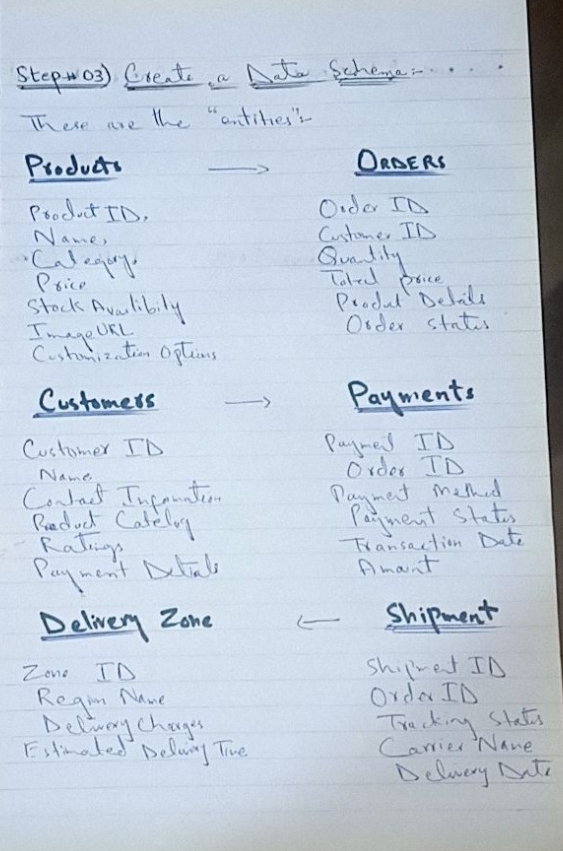 Step# 03) Create a Data Schema:- . . . .
These are the "entities":-
Products → ORDERS
Product ID,
Name,
Category,
Price
Stock Availibility
Image URL
Customization Options
Order ID
Customer ID
Quantity
Total price
Product Details
Order status
Customers → Payments
Customer ID
Name
Contact Information
Product Catelog
Ratings
Payment Details
Payment ID
Order ID
Payment Method
Payment Status
Transaction Date
Amount
Delivery Zone ← Shipment
Zone ID
Region Name
Delivery Charges
Estimated Delivery Time
Shipment ID
Order ID
Tracking Status
Carrier Name
Delivery Date